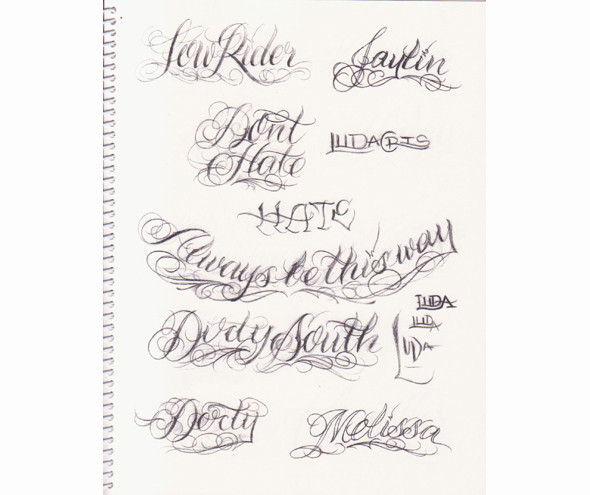 LowRider
Jaylin
Dont
Hate
LUDACRIS
HATE
Always be this way
LUDA
LUDA
LUDA
Dirdy South
Derty
Melissa